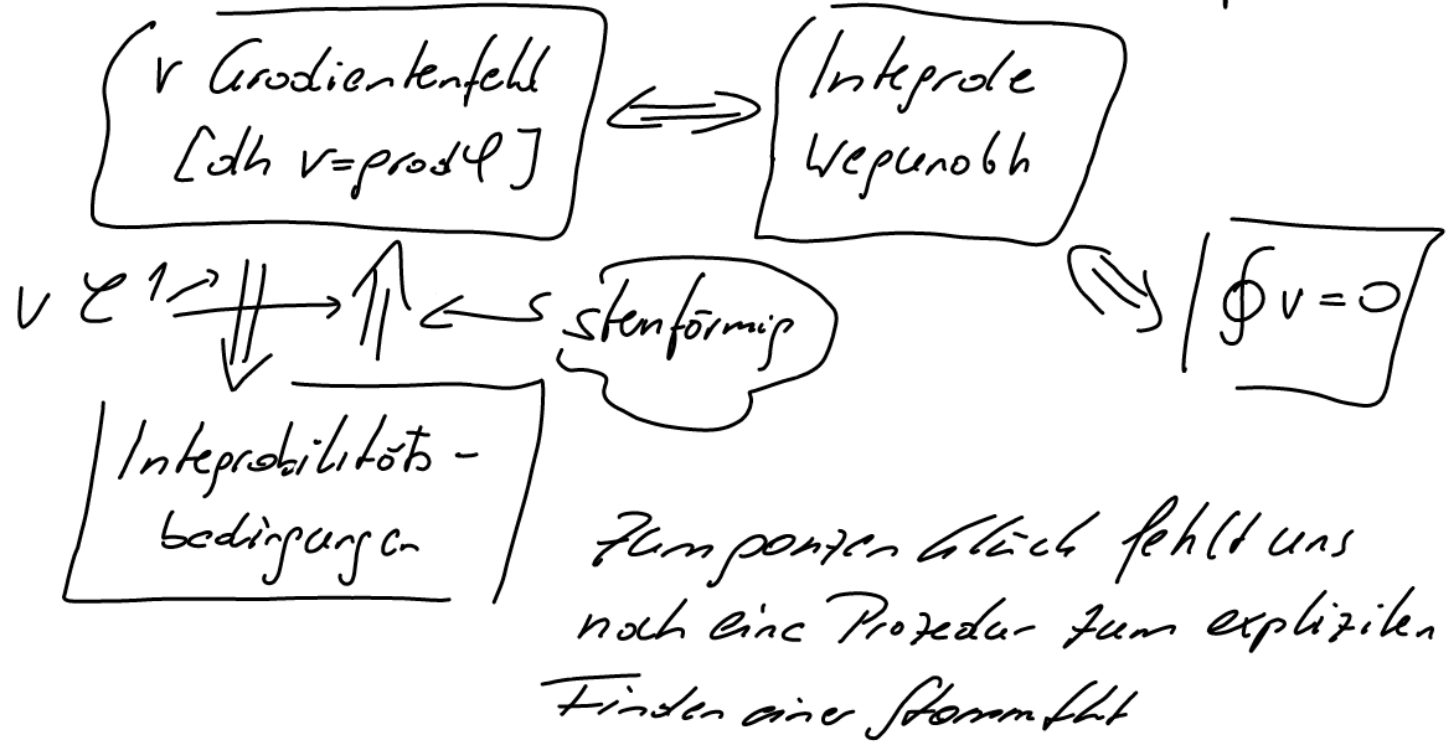 v Gradientenfeld
[dh v=grad φ]
Integrale
Wegunabh
v C¹
sternförmig
∮ v = 0
Integrabilitäts-
bedingungen
Zum ganzen Glück fehlt uns
noch eine Prozedur zum expliziten
Finden einer Stammfkt